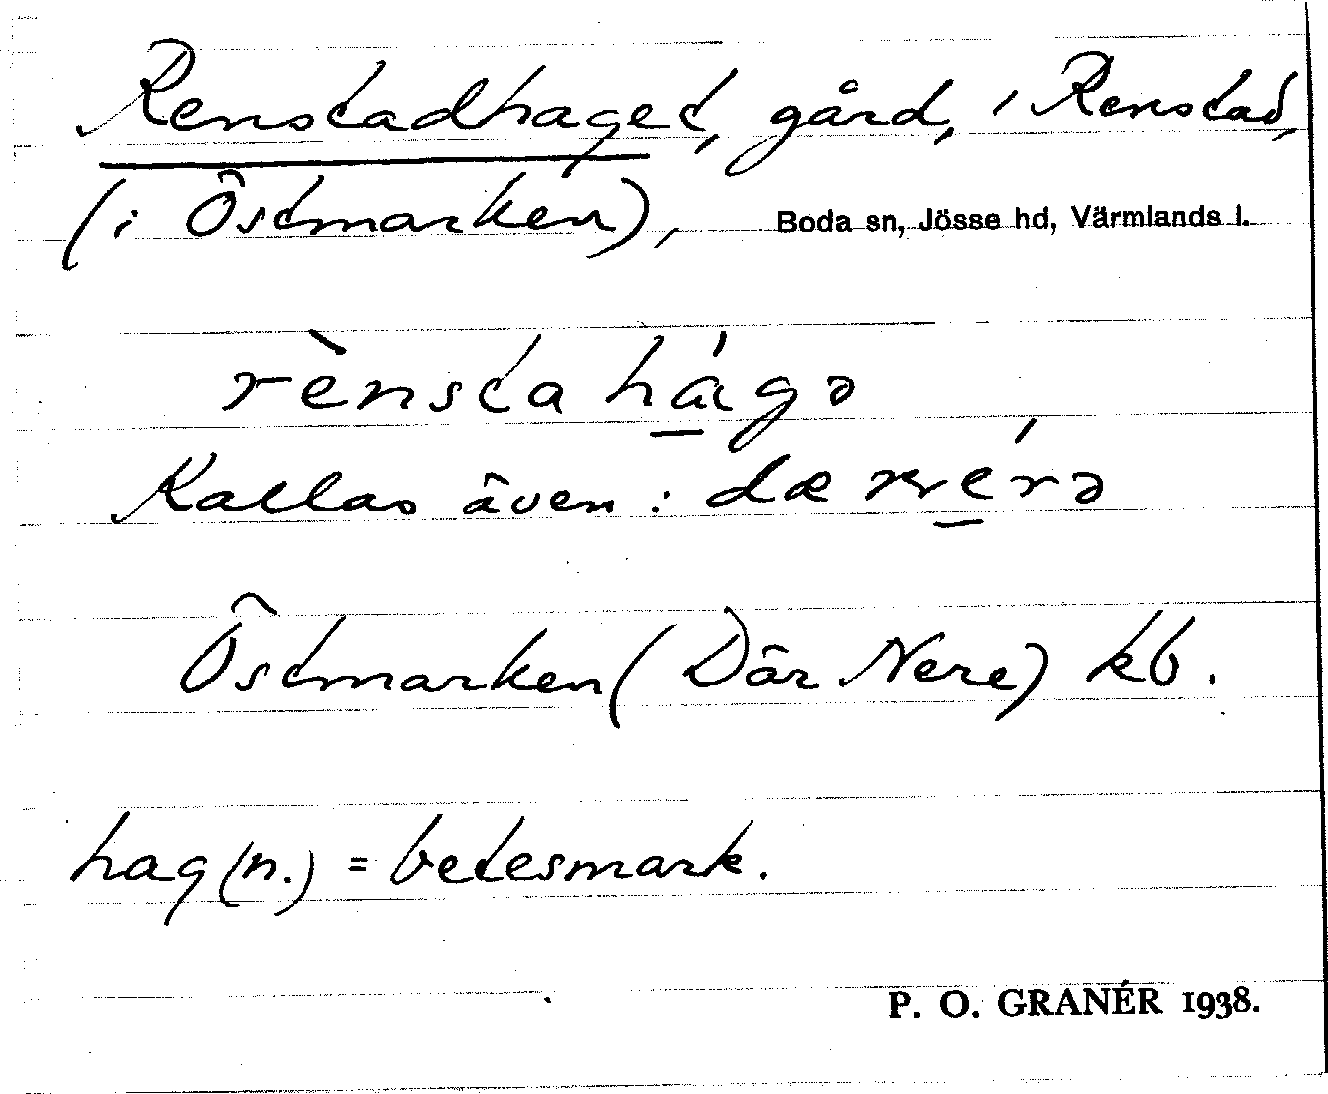 Renstadhaget, gård, i Renstad,
(i Östmarken), Boda sn, Jösse hd, Värmlands l.
rènsta há̱gə
Kallas även: dæ né̱rə
Östmarken (Där Nere) kb.
hag (n.) = betesmark.
P. O. GRANÉR 1938.